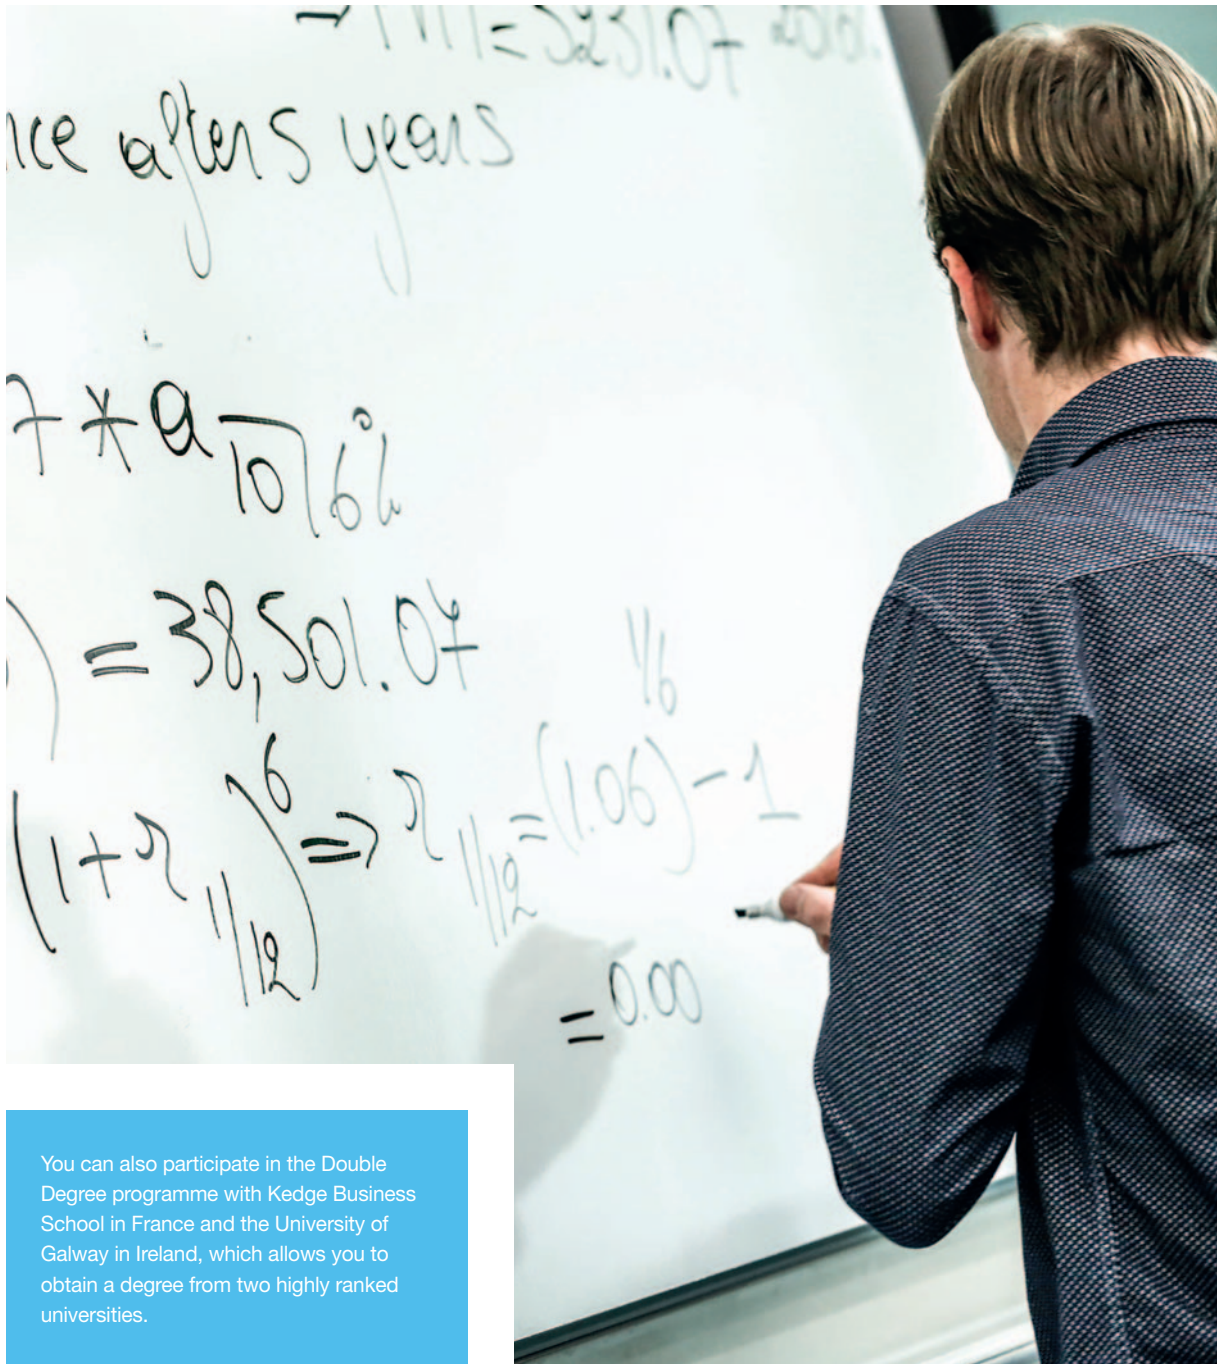 =5231.07
after 5 years
7 * a 10 6%
) = 38,501.07
1/6
(1+r 1/12)^6 => r 1/12 = (1.06) - 1
= 0.00
You can also participate in the Double
Degree programme with Kedge Business
School in France and the University of
Galway in Ireland, which allows you to
obtain a degree from two highly ranked
universities.